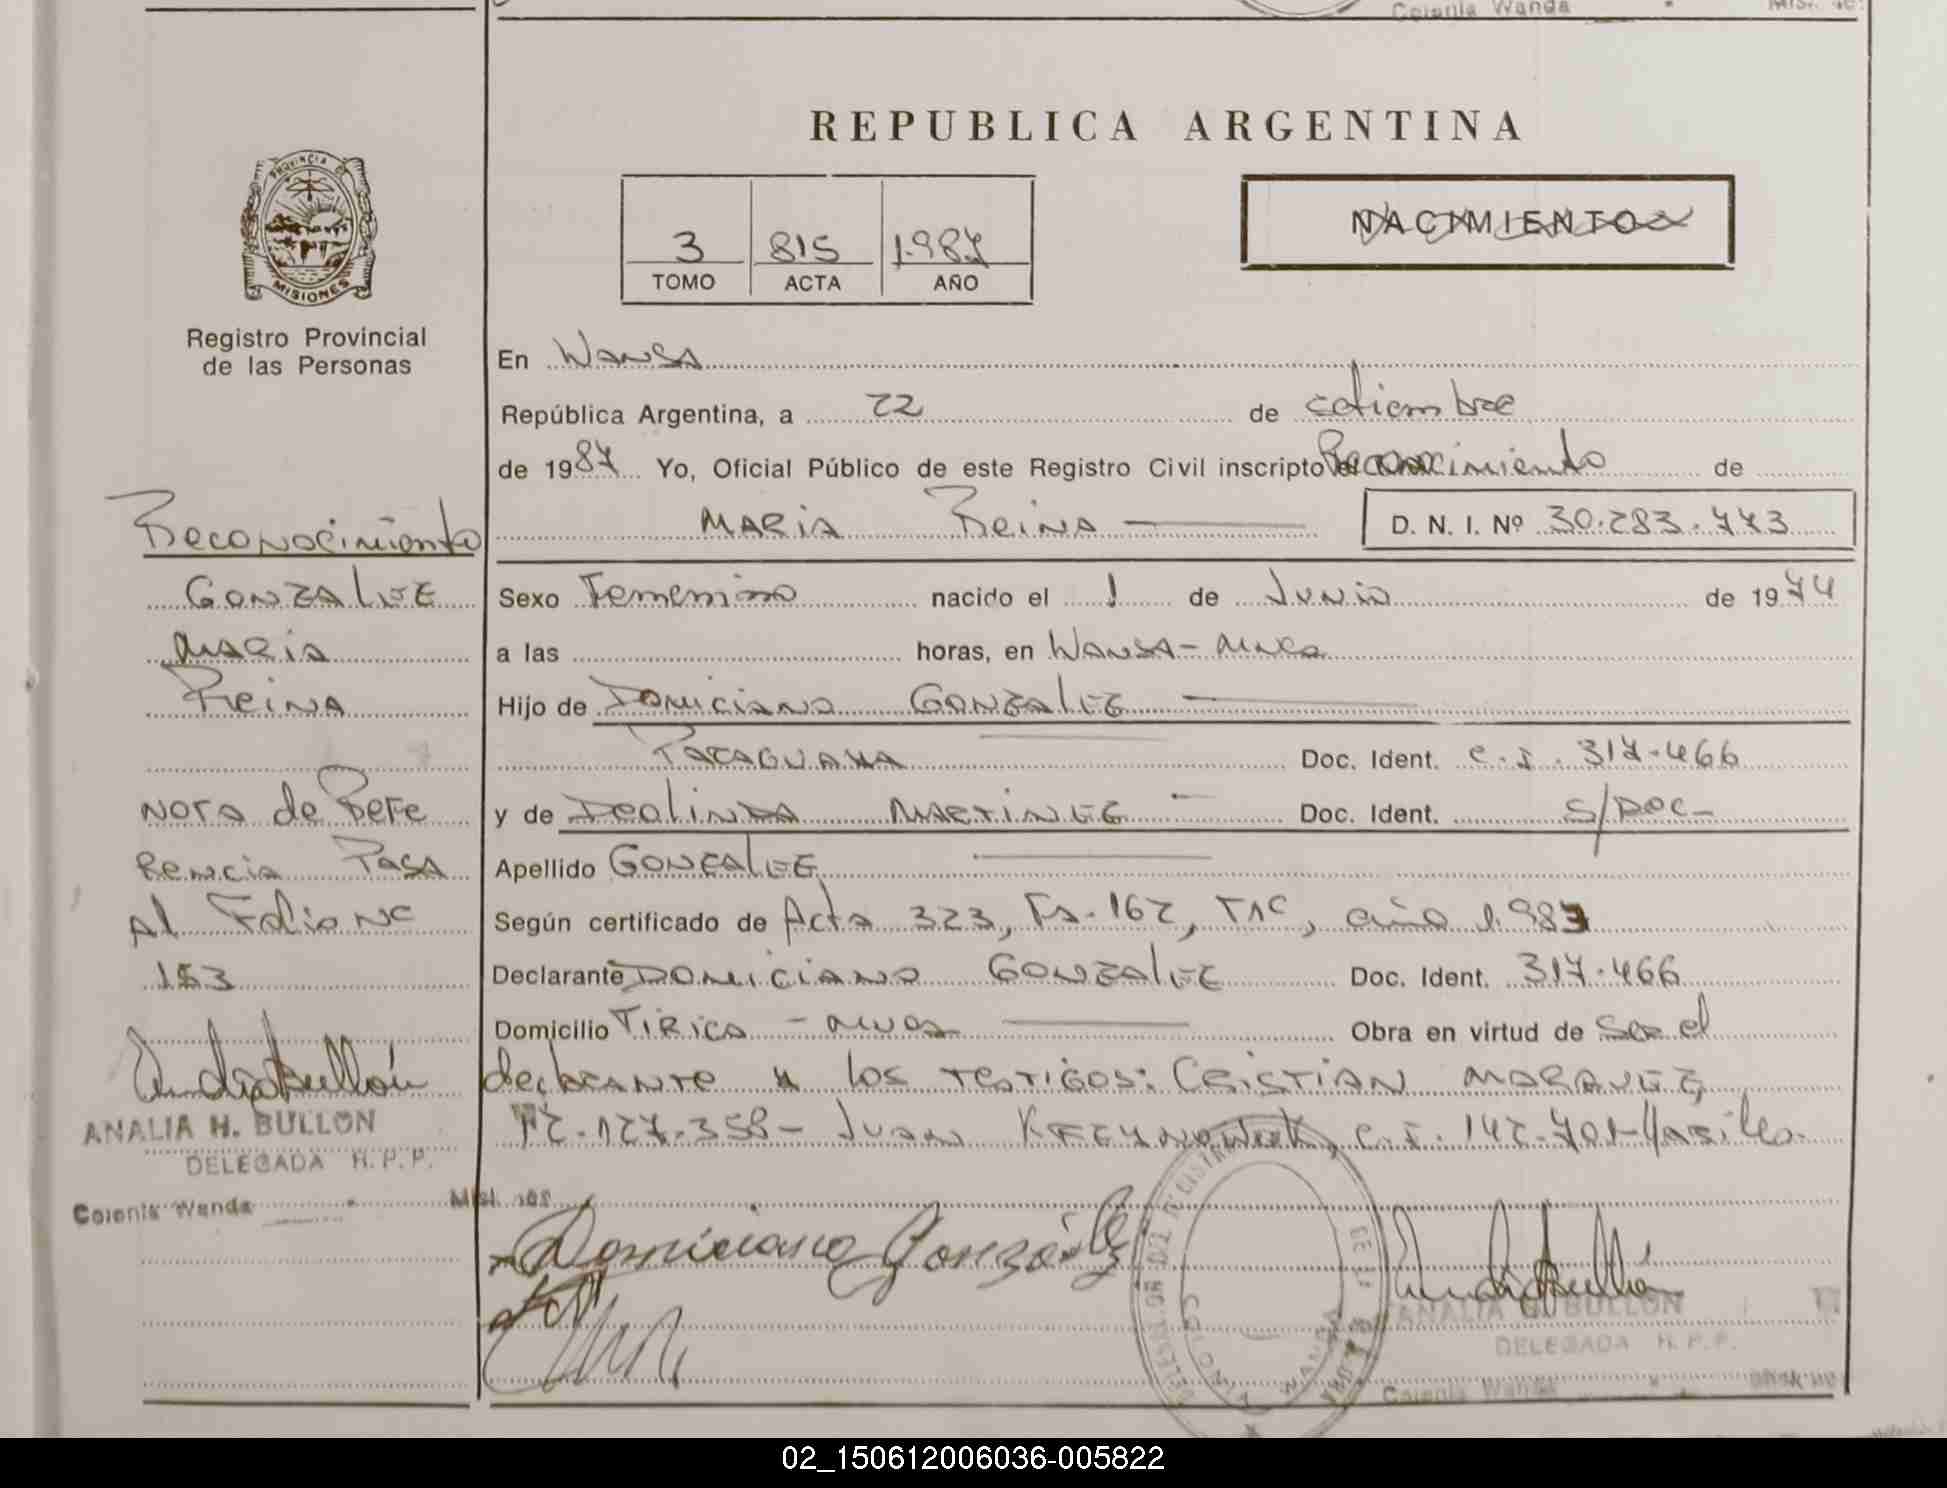 Colonia Wanda
REPUBLICA ARGENTINA
PROVINCIA DE
MISIONES
Registro Provincial
de las Personas
3 815 1.987
TOMO ACTA AÑO
NACIMIENTO
En Wanda
República Argentina, a 22 de setiembre
de 1987 Yo, Oficial Público de este Registro Civil inscripto el Reconocimiento de
MARIA REINA D. N. I. Nº 30.283.773
Sexo Femenino nacido el 1 de Junio de 1974
a las horas, en Wanda - Mnes
Hijo de Domiciano GONZALEZ
Paraguaya Doc. Ident. C.I. 317.466
y de Deolinda MARTINEZ Doc. Ident. S/Doc-
Apellido GONZALEZ
Según certificado de Acta 323, Fº 162, T1º, año 1.987
Declarante Domiciano GONZALEZ Doc. Ident. 317.466
Domicilio Tirica - Mnes Obra en virtud de ser el
declarante y los testigos: Cristian
12.127.358 - Juan C.I. 142.701
Domiciano González
ANALIA H. BULLON
DELEGADA R.P.P.
Colonia Wanda
Reconocimiento
GONZALEZ
MARIA
REINA
Nota de Refe
rencia Pasa
Al Folio Nº
153
ANALIA H. BULLON
DELEGADA R.P.P.
Colonia Wanda Misiones
02_150612006036-005822